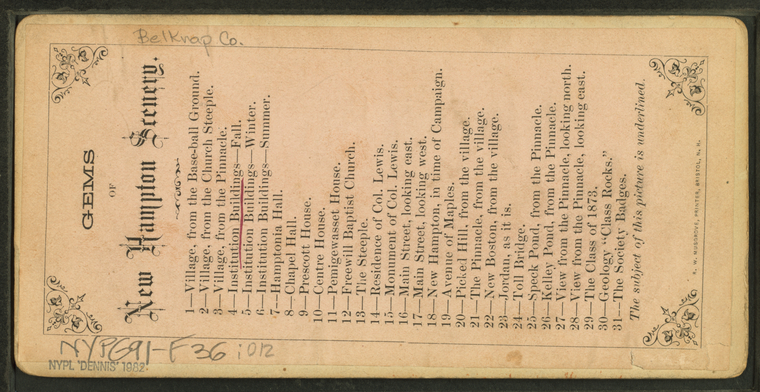 Belknap Co.
GEMS
OF
New Hampton Scenery.
1—Village, from the Base-ball Ground.
2—Village, from the Church Steeple.
3—Village, from the Pinnacle.
4—Institution Buildings—Fall.
5—Institution Buildings—Winter.
6—Institution Buildings—Summer.
7—Hamptonia Hall.
8—Chapel Hall.
9—Prescott House.
10—Centre House.
11—Pemigewasset House.
12—Freewill Baptist Church.
13—The Steeple.
14—Residence of Col. Lewis.
15—Monument of Col. Lewis.
16—Main Street, looking east.
17—Main Street, looking west.
18—New Hampton, in time of Campaign.
19—Avenue of Maples.
20—Pickerel Hill, from the village.
21—The Pinnacle, from the village.
22—New Boston, from the village.
23—Jordan, as it is.
24—Toll Bridge.
25—Speck Pond, from the Pinnacle.
26—Kelley Pond, from the Pinnacle.
27—View from the Pinnacle, looking north.
28—View from the Pinnacle, looking east.
29—The Class of 1873.
30—Geology "Class Rocks."
31—The Society Badges.
The subject of this picture is underlined.
R. W. MUSGROVE, PRINTER, BRISTOL, N.H.
NYPG91-F36 :012
NYPL 'DENNIS' 1982